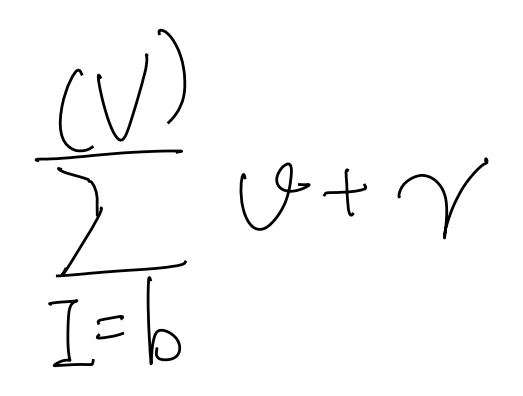 \sum_{I=b}^{(V)} v+\gamma